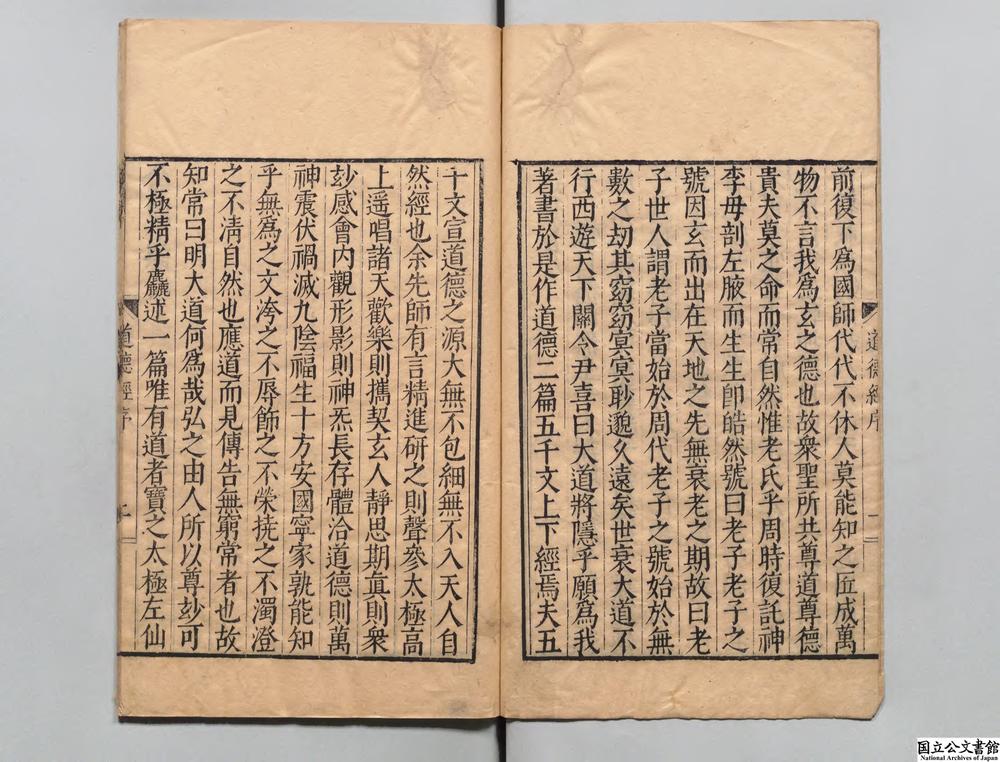 前復下爲國師代代不休人莫能知之匠成萬
物不言我爲玄之德也故衆聖所共尊道尊德
貴夫莫之命而常自然惟老氏乎周時復託神
李母剖左腋而生生卽皓然號曰老子老子之
號因玄而出在天地之先無衰老之期故曰老
子世人謂老子當始於周代老子之號始於無
數之刧其窈窈冥冥眇邈久遠矣世衰大道不
行西遊天下關令尹喜曰大道將隱乎願爲我
著書於是作道德二篇五千文上下經焉夫五
道德經序
一
千文宣道德之源大無不包細無不入天人自
然經也余先師有言精進研之則聲參太極高
上遥唱諸天歡樂則攜契玄人靜思期眞則衆
玅感會内觀形影則神炁長存體洽道德則萬
神震伏禍滅九陰福生十方安國寧家孰能知
乎無爲之文洿之不辱飾之不榮撓之不濁澄
之不淸自然也應道而見傳告無窮常者也故
知常曰明大道何爲哉弘之由人所以尊玅可
不極精乎麤述一篇唯有道者寶之太極左仙
道德經序
二
国立公文書館
National Archives of Japan